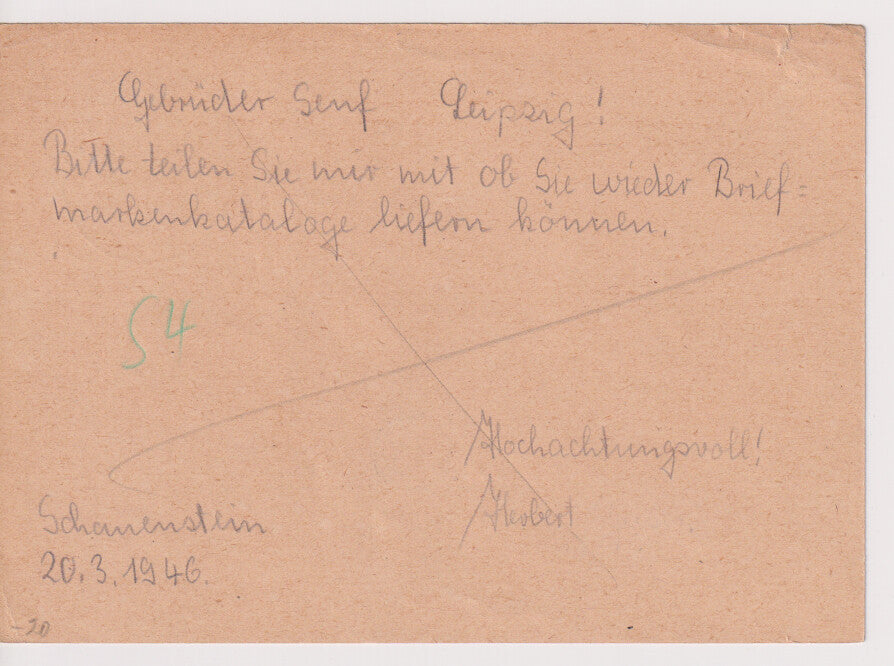 Gebrüder Senf Leipzig!
Bitte teilen Sie mir mit ob Sie wieder Brief=
markenkataloge liefern können.
54
Hochachtungsvoll!
Herbert
Schauenstein
20.3.1946.
-20